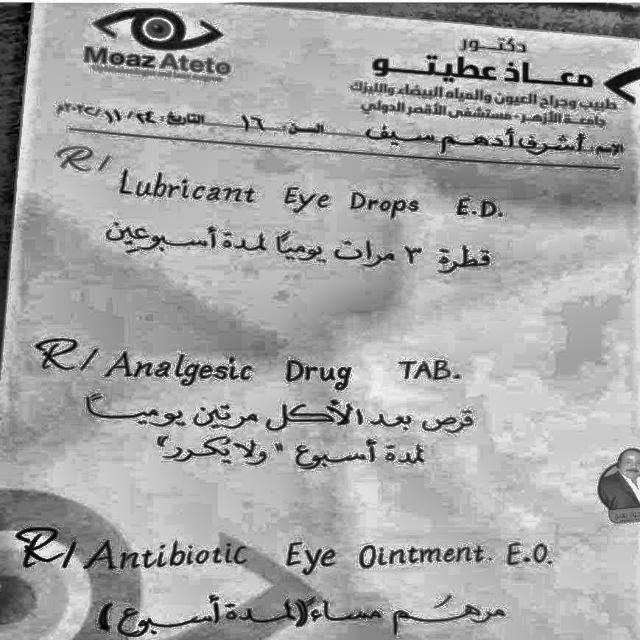 Moaz Ateto
دكتـور
معـاذ عطيتـو
طبيب وجراح العيون والمياه البيضاء والليزك
جامعة الأزهر - مستشفى الأقصر الدولي
الاسم: أشرف أدهم سيف السن: ١٦ التاريخ: ٢٤/١١/
R/ Lubricant Eye Drops E.D.
قطرة ٣ مرات يوميًا لمدة أسبوعين
R/ Analgesic Drug TAB.
قرص بعد الأكل مرتين يوميًا
لمدة أسبوع "ولا يُكرر"
R/ Antibiotic Eye Ointment. E.O.
مرهم مساءً (لمدة أسبوع)